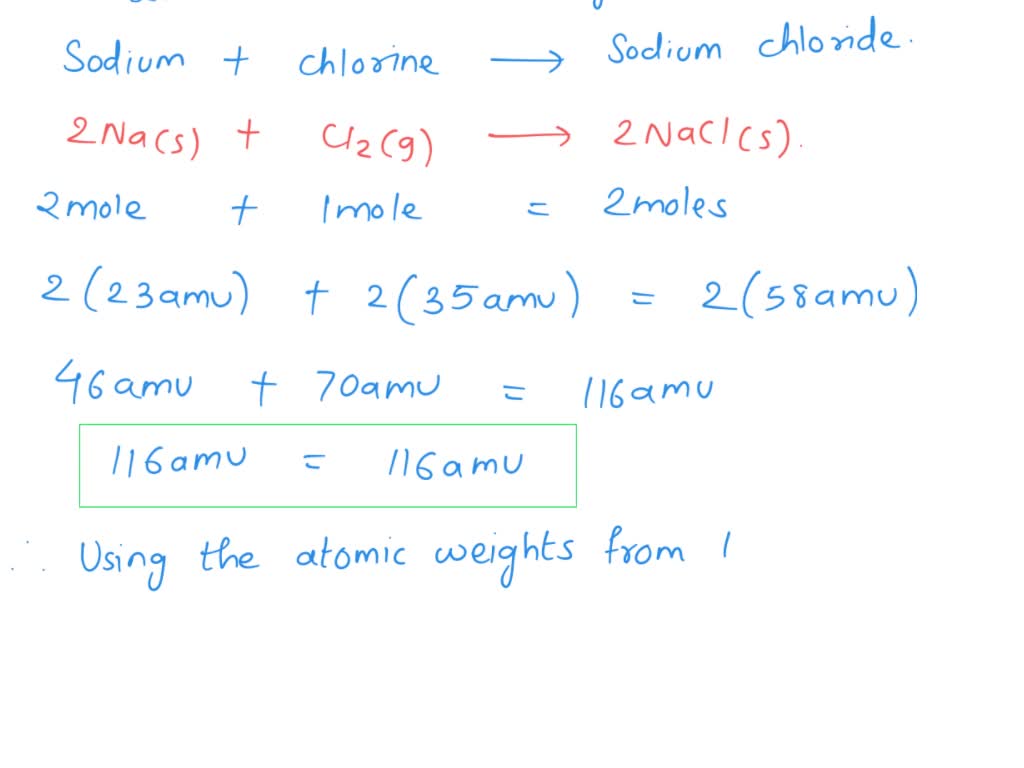 Sodium + chlorine → Sodium chloride.
2Na(s) + Cl2(g) → 2NaCl(s).
2mole + 1mole = 2moles
2(23amu) + 2(35amu) = 2(58amu)
46amu + 70amu = 116amu
116amu = 116amu
∴ Using the atomic weights from